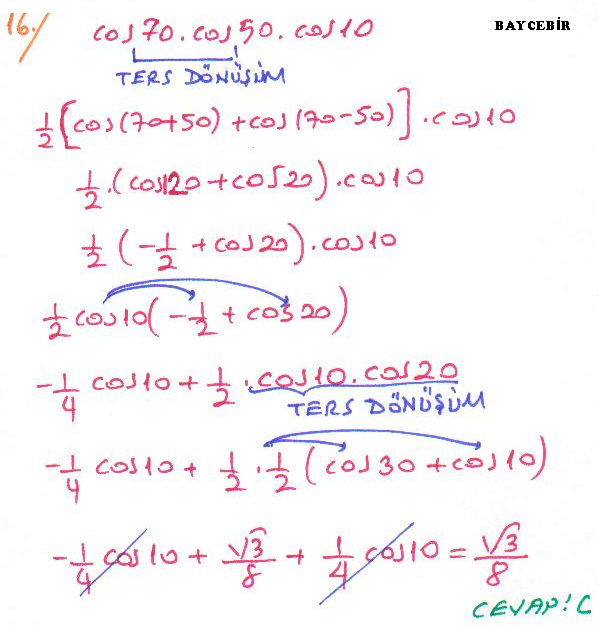 16./ cos70.cos50.cos10 BAYCEBİR
TERS DÖNÜŞÜM
1/2[cos(70+50)+cos(70-50)].cos10
1/2.(cos120+cos20).cos10
1/2(-1/2+cos20).cos10
1/2cos10(-1/2+cos20)
-1/4cos10+1/2.cos10.cos20
TERS DÖNÜŞÜM
-1/4cos10+1/2.1/2(cos30+cos10)
-1/4cos10+√3/8+1/4cos10=√3/8
CEVAP:C